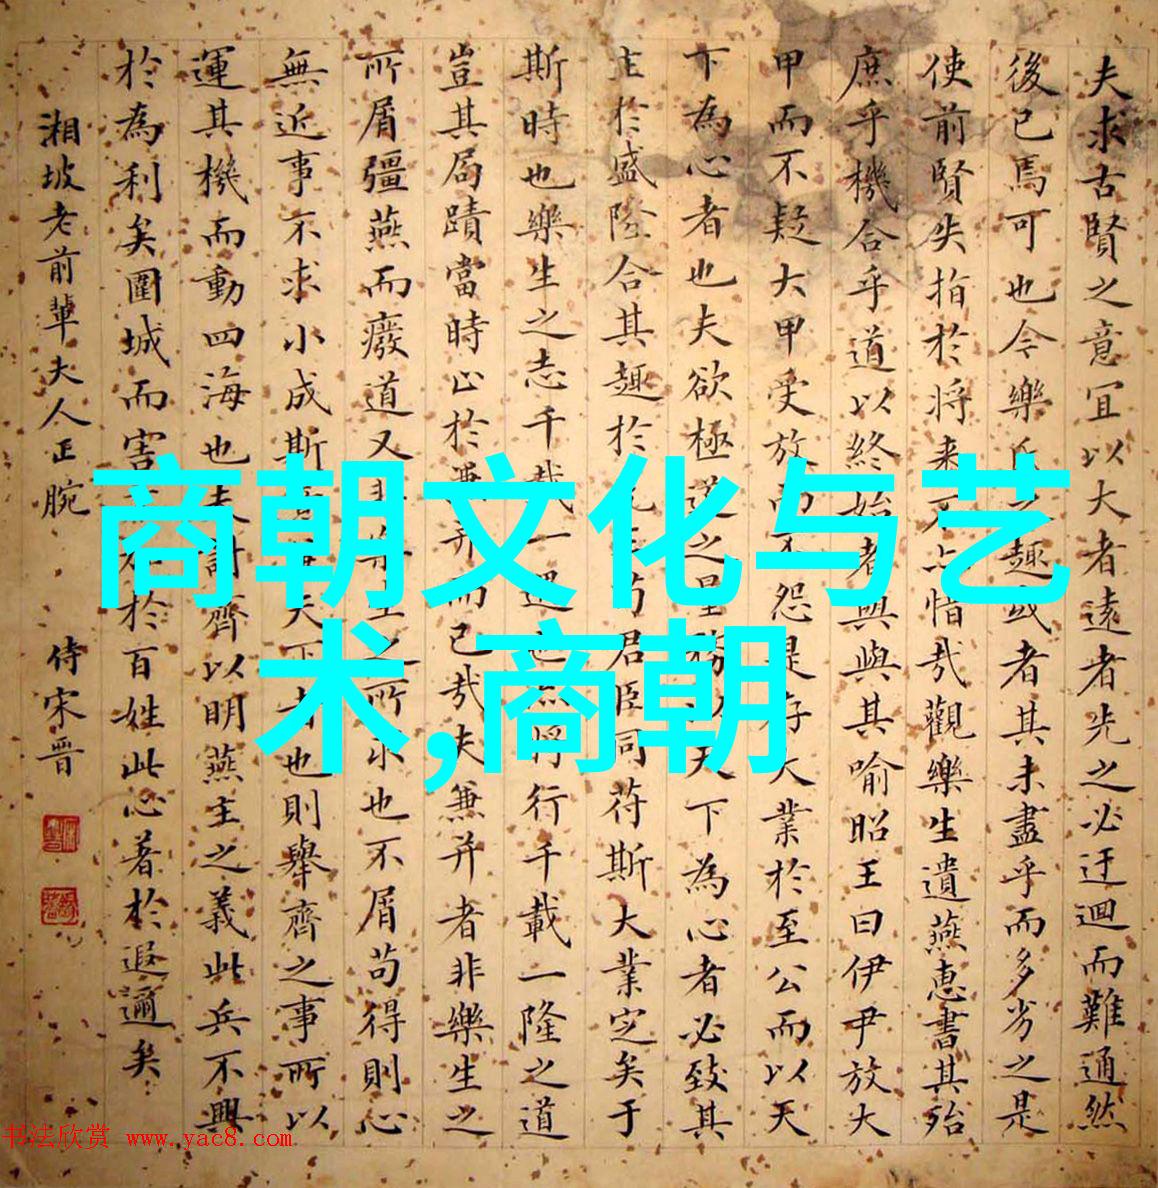 夫求古賢之意宜以大者遠者先之必迂迴而難通然
後已焉可也今樂氏之趣或者其未盡乎而多劣之是
使前賢失指於将来不亦惜哉觀樂生遺燕惠書其殆
庶乎機合乎道以終始者與與其喻昭王曰伊尹放大
甲而不疑大甲受放而不怨是存大業於至公而以天
下為心者也夫欲極道之量務以天下為心者必致其
主於盛隆合其趣於先王苟君臣同苻斯大業定矣于
斯時也樂生之志千載一遇也亦将行千載一隆之道
豈其局蹟當時止於兼并而已哉夫兼并者非樂生之
所屑彊燕而廢道又非樂生之所求也不屑苟得則心
無近事不求小成斯意兼天下者也則舉齊之事所以
運其機而動四海也夫討齊以明燕主之義此兵不興
於為利矣圍城而害不加於百姓此心著於遐邇矣
湘坡老前輩夫人正腕 侍宋晋
商朝文化与艺
术,商朝
书法欣赏 www.yac8.com